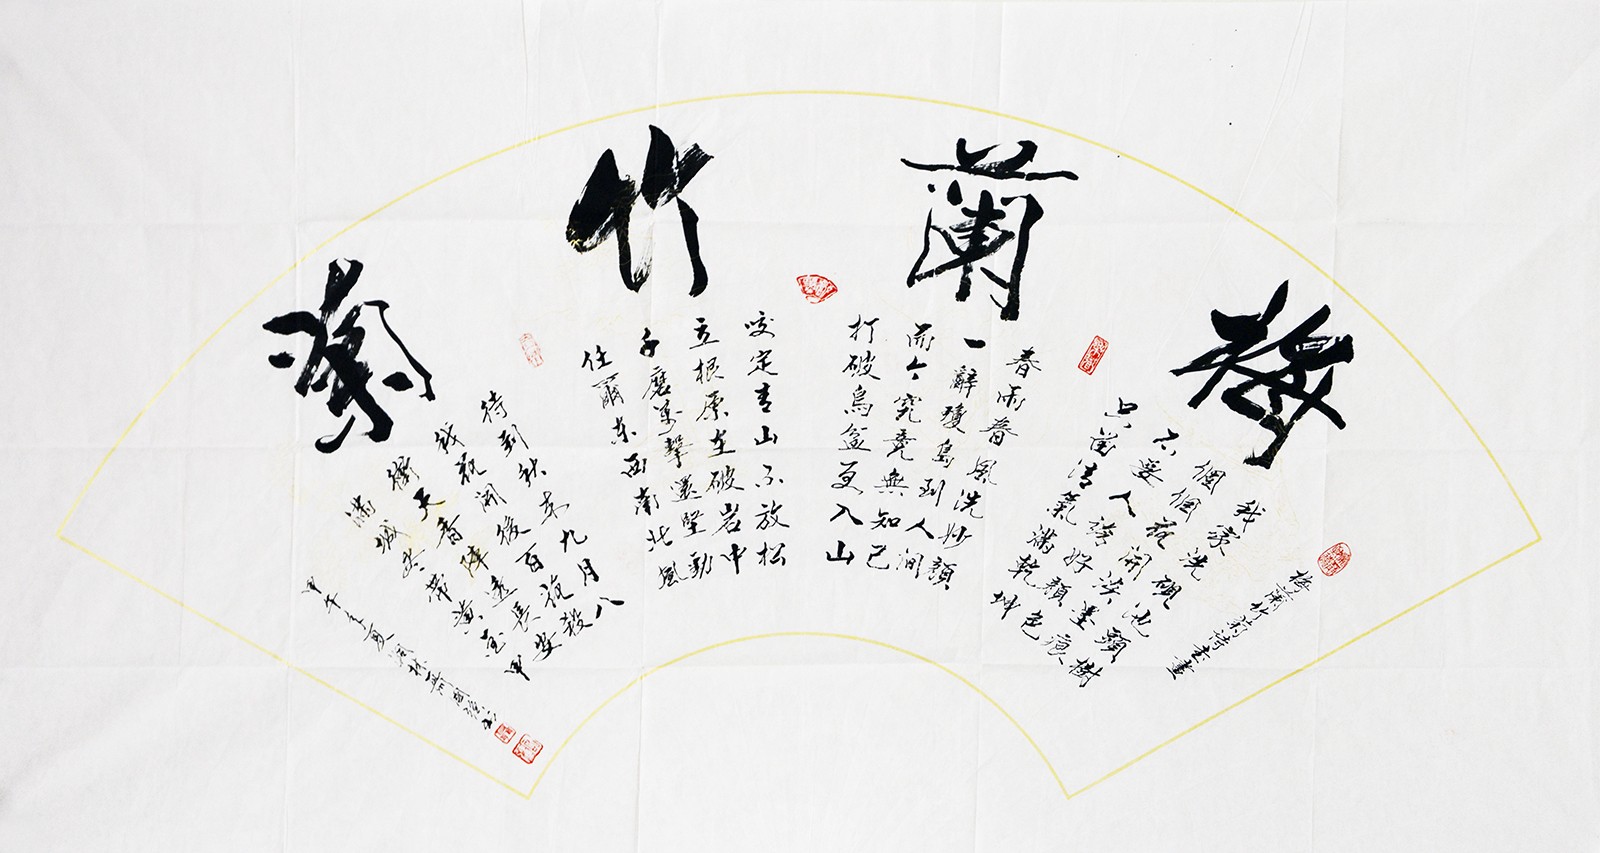 梅
蘭
竹
菊
梅蘭竹菊詩書畫
我家洗硯池頭樹
個個花開淡墨痕
不要人誇好顏色
只留清氣滿乾坤
春雨春風洗妙顏
一辭瓊島到人間
而今究竟無知己
打破烏盆更入山
咬定青山不放松
立根原在破岩中
千磨萬擊還堅勁
任爾东西南北風
待到秋来九月八
我花開後百花殺
衝天香陣透長安
滿城尽帶黃金甲
甲午年夏